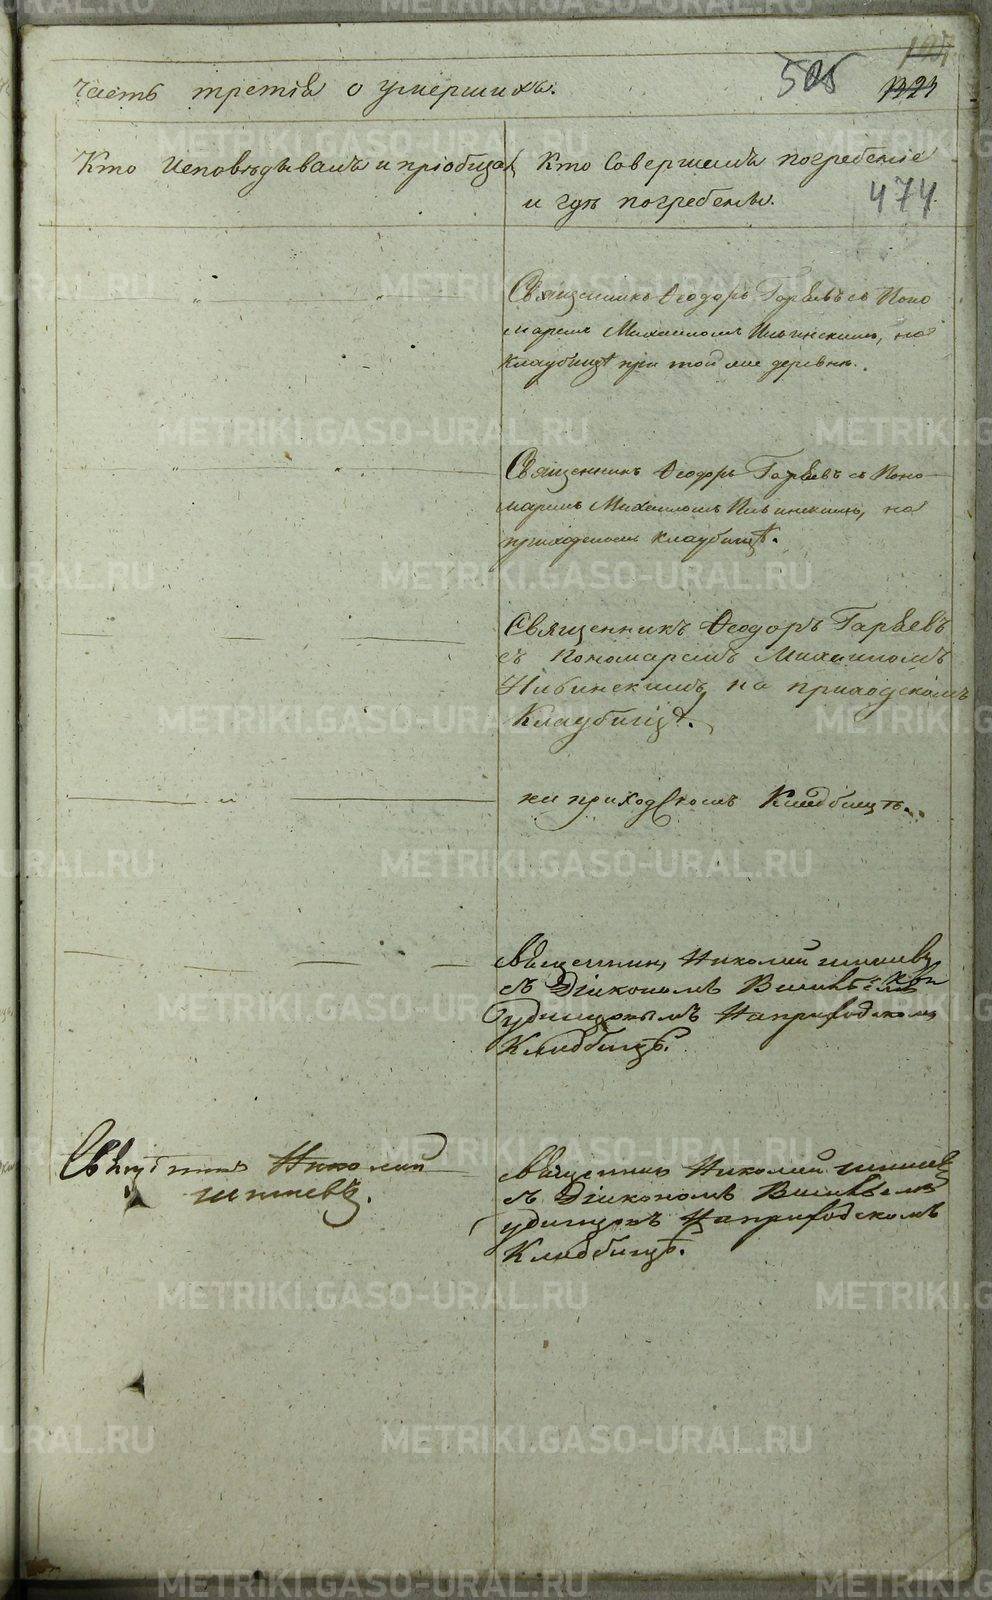 Часть третія о умершихъ.
505
474
Кто исповѣдывалъ и пріобщал
Кто совершалъ погребеніе
и гдѣ погребены.
Священникъ Ѳеодоръ Гаряевъ съ Поно
маремъ Михаиломъ Ильинскимъ, на
кладбищѣ при той же деревнѣ.
Священникъ Ѳеодоръ Гаряевъ съ Поно-
маремъ Михаиломъ Ильинскимъ, на
приходскомъ кладбищѣ.
Священникъ Ѳеодоръ Гаряевъ
съ Пономаремъ Михаиломъ
Ильинскимъ на приходскомъ
Кладбищѣ.
на приходскомъ Кладбищѣ.
Священник Николай
съ Діакономъ
На приходском
Кладбищѣ.
Священникъ Николай
Священник Николай
съ Діакономъ
На приходскомъ
Кладбищѣ.
METRIKI.GASO-URAL.RU